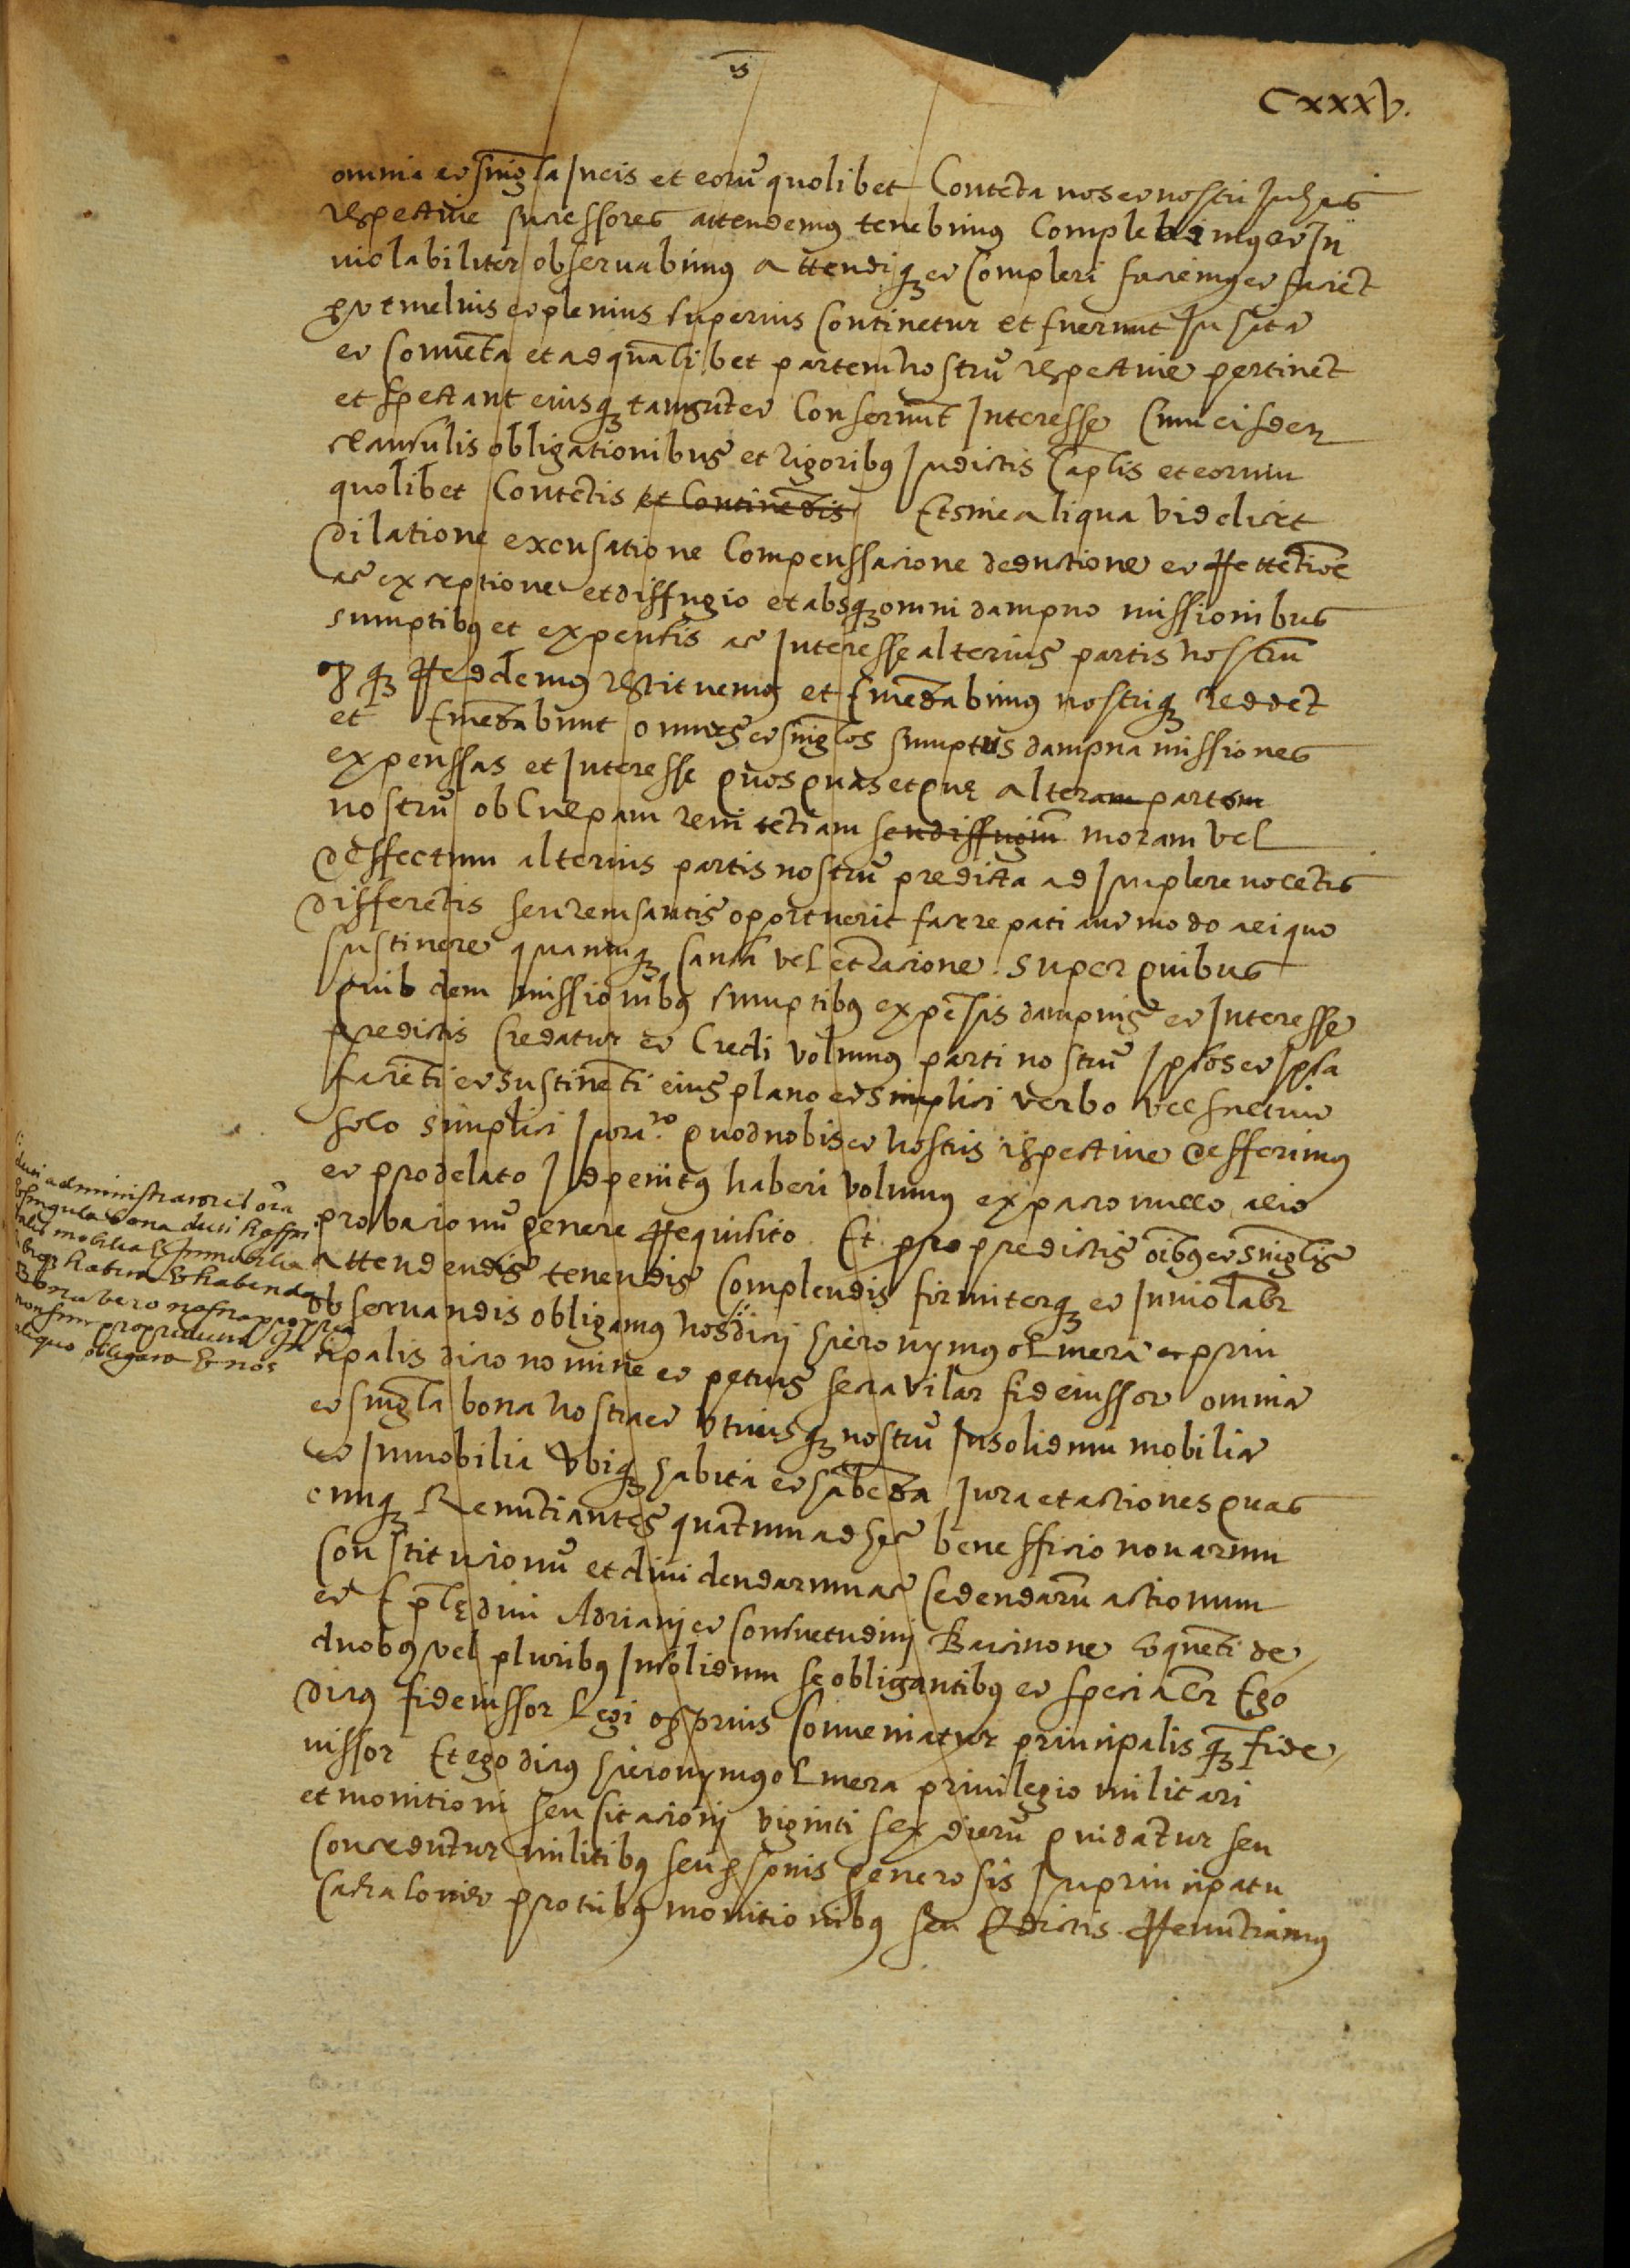 CxxxV.
omnia et singla In eis et eorū quolibet Contēta nos et nostri In his
respective successores attendemus tenebimus Complebimus et In
violabiliter observabimus Attendiq3 et Compleri faciemus et faciēt
put melius et plenius superius Continetur et fuerunt In
et Convēta et ad quālibet partem nostrū respective pertinēt
et spectant eiusq3 tangūt et Concernūt Interesse Cum eisdem
clausulis obligationibus et rigoribus In dictis Caplis et eorum
quolibet Contētis et Continēdis Et sine aliqua videlicet
dilatione excusatione Compenssacione deductione et Rettētione
ac exceptione et diffugio et absq3 omni dampno missionibus
sumptibus et expensis ac Interesse alterius partis nostrū
q3 Reddemus restituemus et Emēdabimus nostriq3 reddēt
et Emēdabunt omnes et singlos sumptus dampna missiones
expenssas et Interesse quos quas et que alteram partem
nostrū ob Culpam reni tētiam seu diffugiū moram vel
deffectum alterius partis nostrū predicta adImplere nocētis
differētis seu recusantis oportuerit facere pati aut modo aliquo
sustinere quacumq3 causa vel etiā racione Super quibus
quib dem missionibus sumptibus expēsis dampnis et Interesse
predictis Credatur et Credi volumus parti nostrū Ipsos et Ipsa
faciēti et sustinēti eius plano et simplici verbo vel
solo simplici Iura.to quod nobis et nostris respective defferimus
et pro delato Id penitus haberi volumus ex pacto nullo alio
probacionū genere Requisito Et pro predictis oībus et singlis
Attendendis tenendis Complendis firmiterq3 et Inviolabr
observandis obligamus nos dicij Hieronymus olmera et prin
cipalis dicto nomine et petrus serra vilar fideiussor omnia
et singla bona nostra et utriusq3 nostrū Insolidum mobilia
et Inmobilia Ubiq3 habita et habēda Iura et actiones quas
cumq3 Renuntiantes quātum ad hec benefficio novarum
Constitucionū et dividendarum ac Cedendarū actionum
et Eple divi Adriani et Consuetudini Barcinone loquēti de
duobus vel pluribus Insolidum se obligantibus et specialr Ego
dictus fideiussor Legi q prius Conveniatur principalis q3 fide
iussor Et ego dictus Hieronymus olmera privilegio militari
et monitioni seu citacioni viginti sex dierū qui datur seu
Concedūtur militibus seu psonis generosis In principatu
Cathalonie pro tribus monitionibus seu Edictis Renuntiamus
administrationis oīa
et singula bona dicti hospi
talis mobilia et Inmobilia
ubiq3 habita et habenda
Bona vero nostra propria
non sunt propterea In
aliquo obligata Et nos